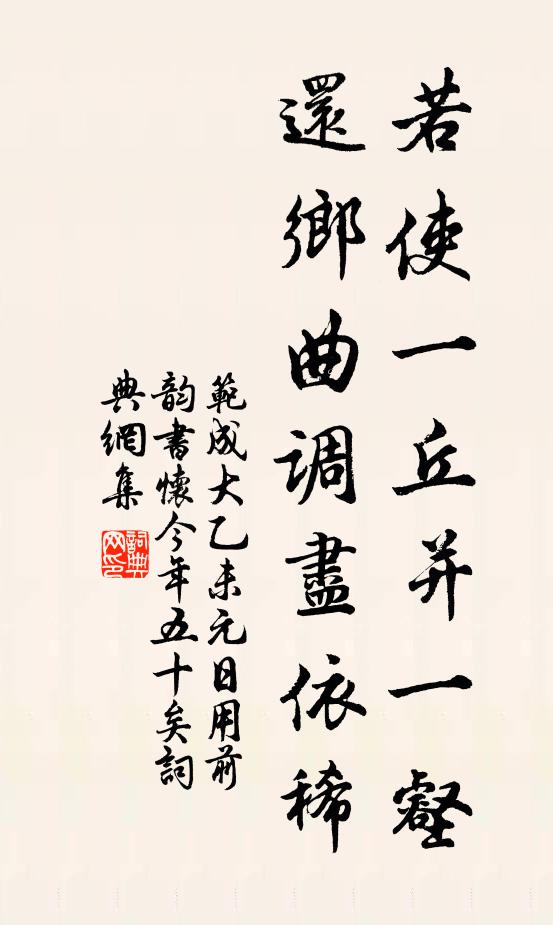 若使一丘并一壑
還鄉曲調盡依稀
範成大乙未元日用前
韵書懷今年五十矣詞
典網集
詞典网印